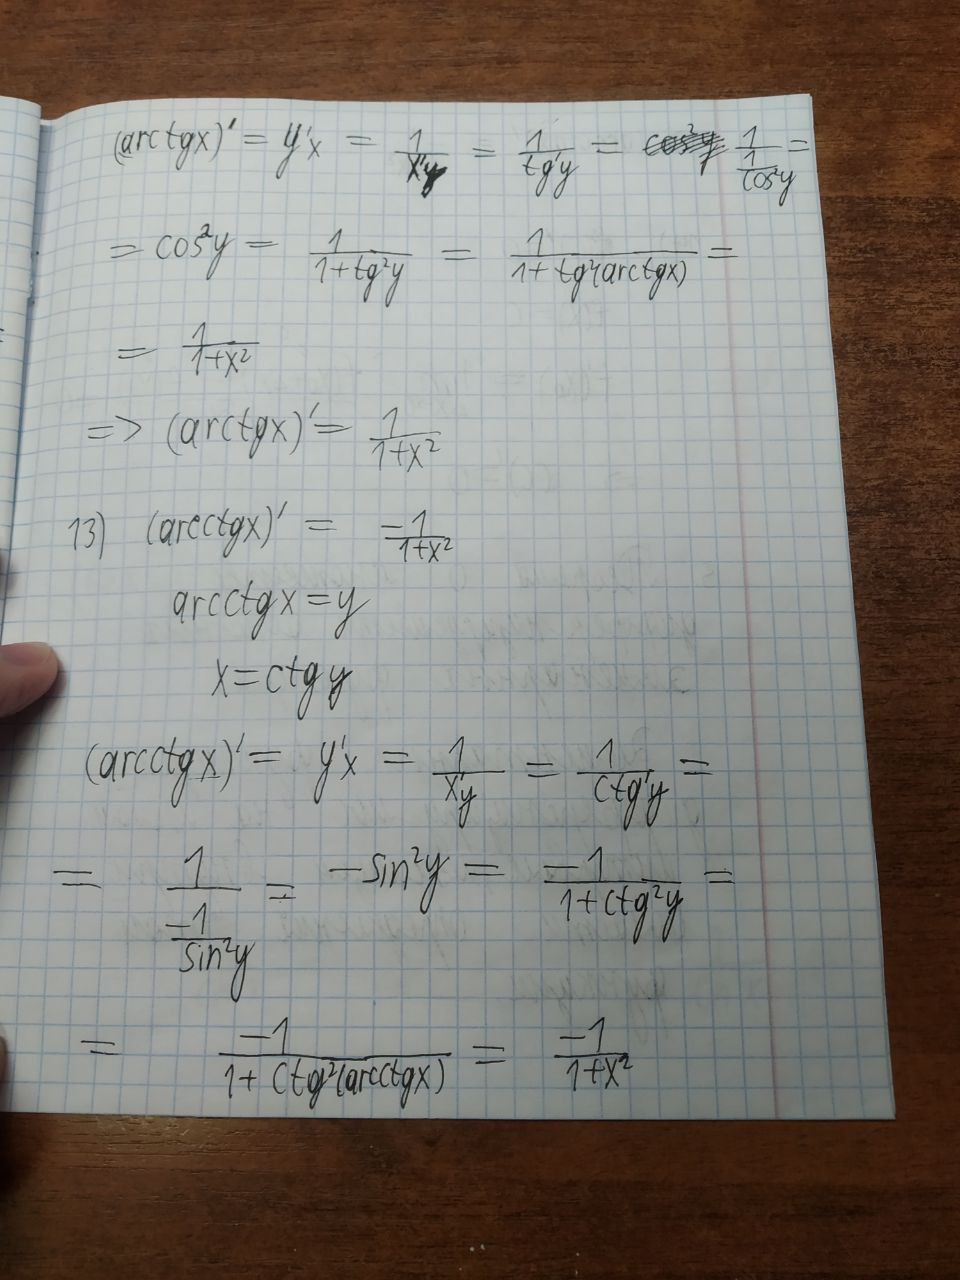 (arctgx)' = y'x = 1/x'y = 1/tg'y = cos²y 1/(1/cos²y) =
= cos²y = 1/(1+tg²y) = 1/(1+tg²(arctgx)) =
= 1/(1+x²)
=> (arctgx)' = 1/(1+x²)
13) (arcctgx)' = -1/(1+x²)
arcctgx = y
x = ctgy
(arcctgx)' = y'x = 1/x'y = 1/ctg'y =
= 1/(-1/sin²y) = -sin²y = -1/(1+ctg²y) =
= -1/(1+ctg²(arcctgx)) = -1/(1+x²)